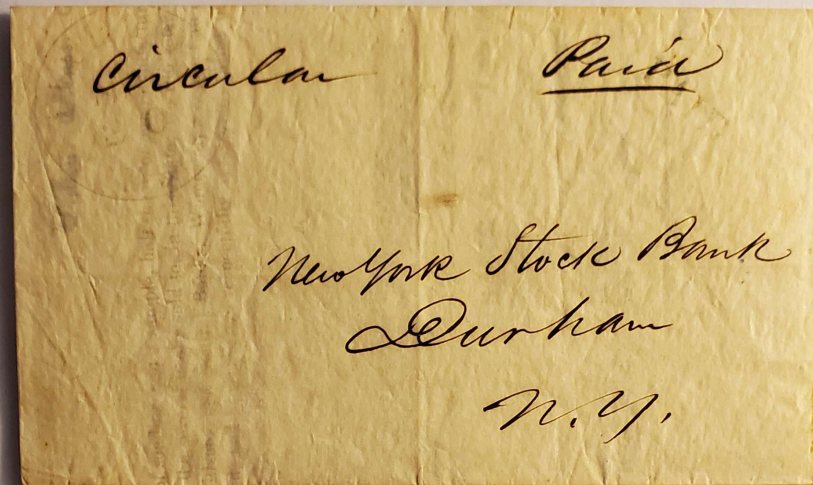 Circular Paid
New York Stock Bank
Durham
N.Y.